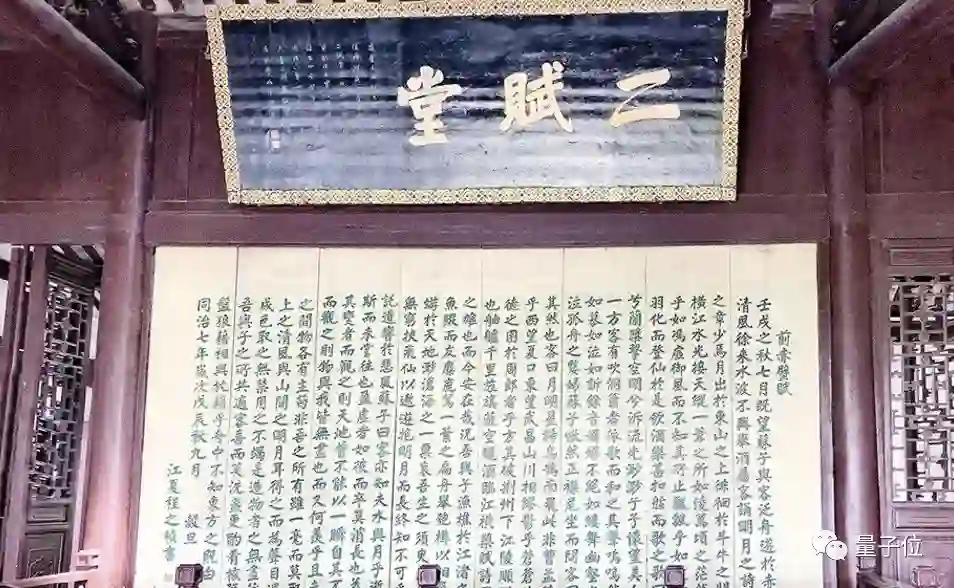 二賦堂
前赤壁賦
壬戌之秋七月既望蘇子與客泛舟遊於赤
清風徐來水波不興舉酒屬客誦明月之詩
之章少焉月出於東山之上徘徊於斗牛之
橫江水光接天縱一葦之所如陵萬頃之茫
乎如馮虛御風而不知其所止飄飄乎如
羽化而登仙於是飲酒樂甚扣舷而歌之歌
兮蘭槳擊空明兮泝流光渺渺兮予懷望美
一方客有吹洞簫者倚歌而和之其聲嗚嗚
如慕如泣如訴餘音嫋嫋不絕如縷舞幽壑
泣孤舟之嫠婦蘇子愀然正襟危坐而問客
其然也客曰月明星稀烏鵲南飛此非曹孟
乎西望夏口東望武昌山川相繆鬱乎蒼蒼
德之困於周郎者乎方其破荊州下江陵順
也舳艫千里旌旗蔽空釃酒臨江橫槊賦詩
之雄也而今安在哉況吾與子漁樵於江渚
魚鰕而友麋鹿駕一葉之扁舟舉匏樽以相
蜉於天地渺滄海之一粟哀吾生之須臾
無窮挾飛仙以遨遊抱明月而長終知不可
託遺響於悲風蘇子曰客亦知夫水與月乎逝
斯而未嘗往也盈虛者如彼而卒莫消長也
其變者而觀之則天地曾不能以一瞬自其不
而觀之則物與我皆無盡也而又何羨乎且
之間物各有主苟非吾之所有雖一毫而莫
上之清風與山間之明月耳得之而為聲目遇
成色取之無禁用之不竭是造物者之無盡
吾與子之所共適客喜而笑洗盞更酌肴核
盤狼籍相與枕藉乎舟中不知東方之既白
同治七年歲次戊辰秋九月 穀旦
江夏程之楨書
量子位